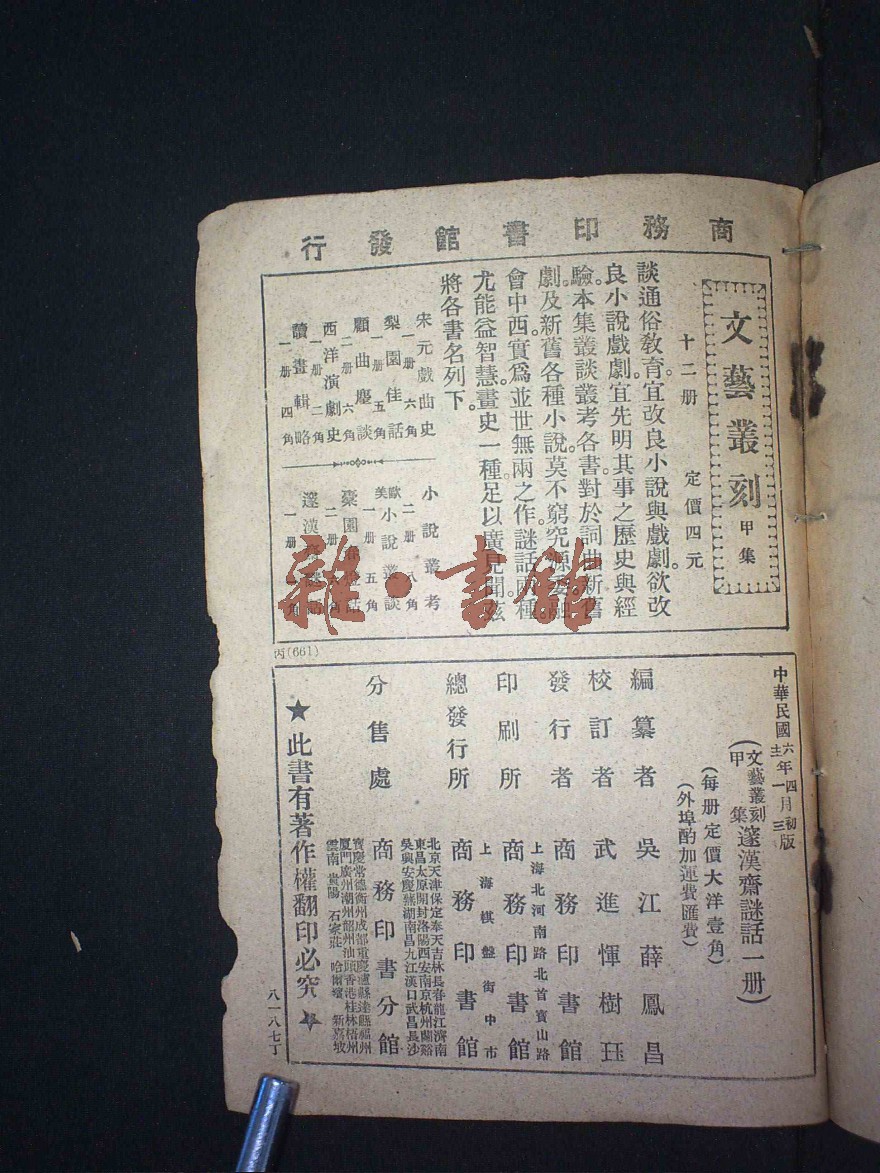 商務印書館發行
文藝叢刻甲集
十二册 定價四元
談通俗教育。宜改良小說與戲劇。欲改
良小說戲劇。宜先明其事之歷史與經
驗。本集叢談叢考各書。對於詞曲新舊
劇及新舊各種小說。莫不窮究源委。融
會中西。實爲並世無兩之作。謎話兩種。
尤能益智慧。畫史一種。足以廣見聞。茲
將各書名列下。
宋元戲曲史
一册 六角
梨園佳話
一册 五角
顧曲麈談
二册 六角
西洋演劇史
一册 二角
讀畫輯略
一册 四角
小說叢考
二册 八角
歐美小說叢談
一册 五角
二册
邃漢齋謎話
一册 一角
丙(661)
中華民國六年四月初版
(文藝叢刻甲集邃漢齋謎話一册)
(每册定價大洋壹角)
(外埠酌加運費匯費)
編纂者 吳江薛鳳昌
校訂者 武進惲樹珏
發行者 商務印書館
上海北河南路北首寶山路
印刷所 商務印書館
上海棋盤街中市
總發行所 商務印書館
北京天津保定奉天吉林長春龍江濟南
東昌太原開封洛陽西安南京杭州蘭谿
吳興安慶蕪湖南昌九江漢口武昌長沙
分售處 商務印書分館
寶慶常德衡州成都重慶瀘縣達縣福州
廈門廣州潮州韶州汕頭香港桂林梧州
雲南 貴陽 石家莊 哈爾濱 新嘉坡
★此書有著作權翻印必究★
八一八七丁
雜·書館